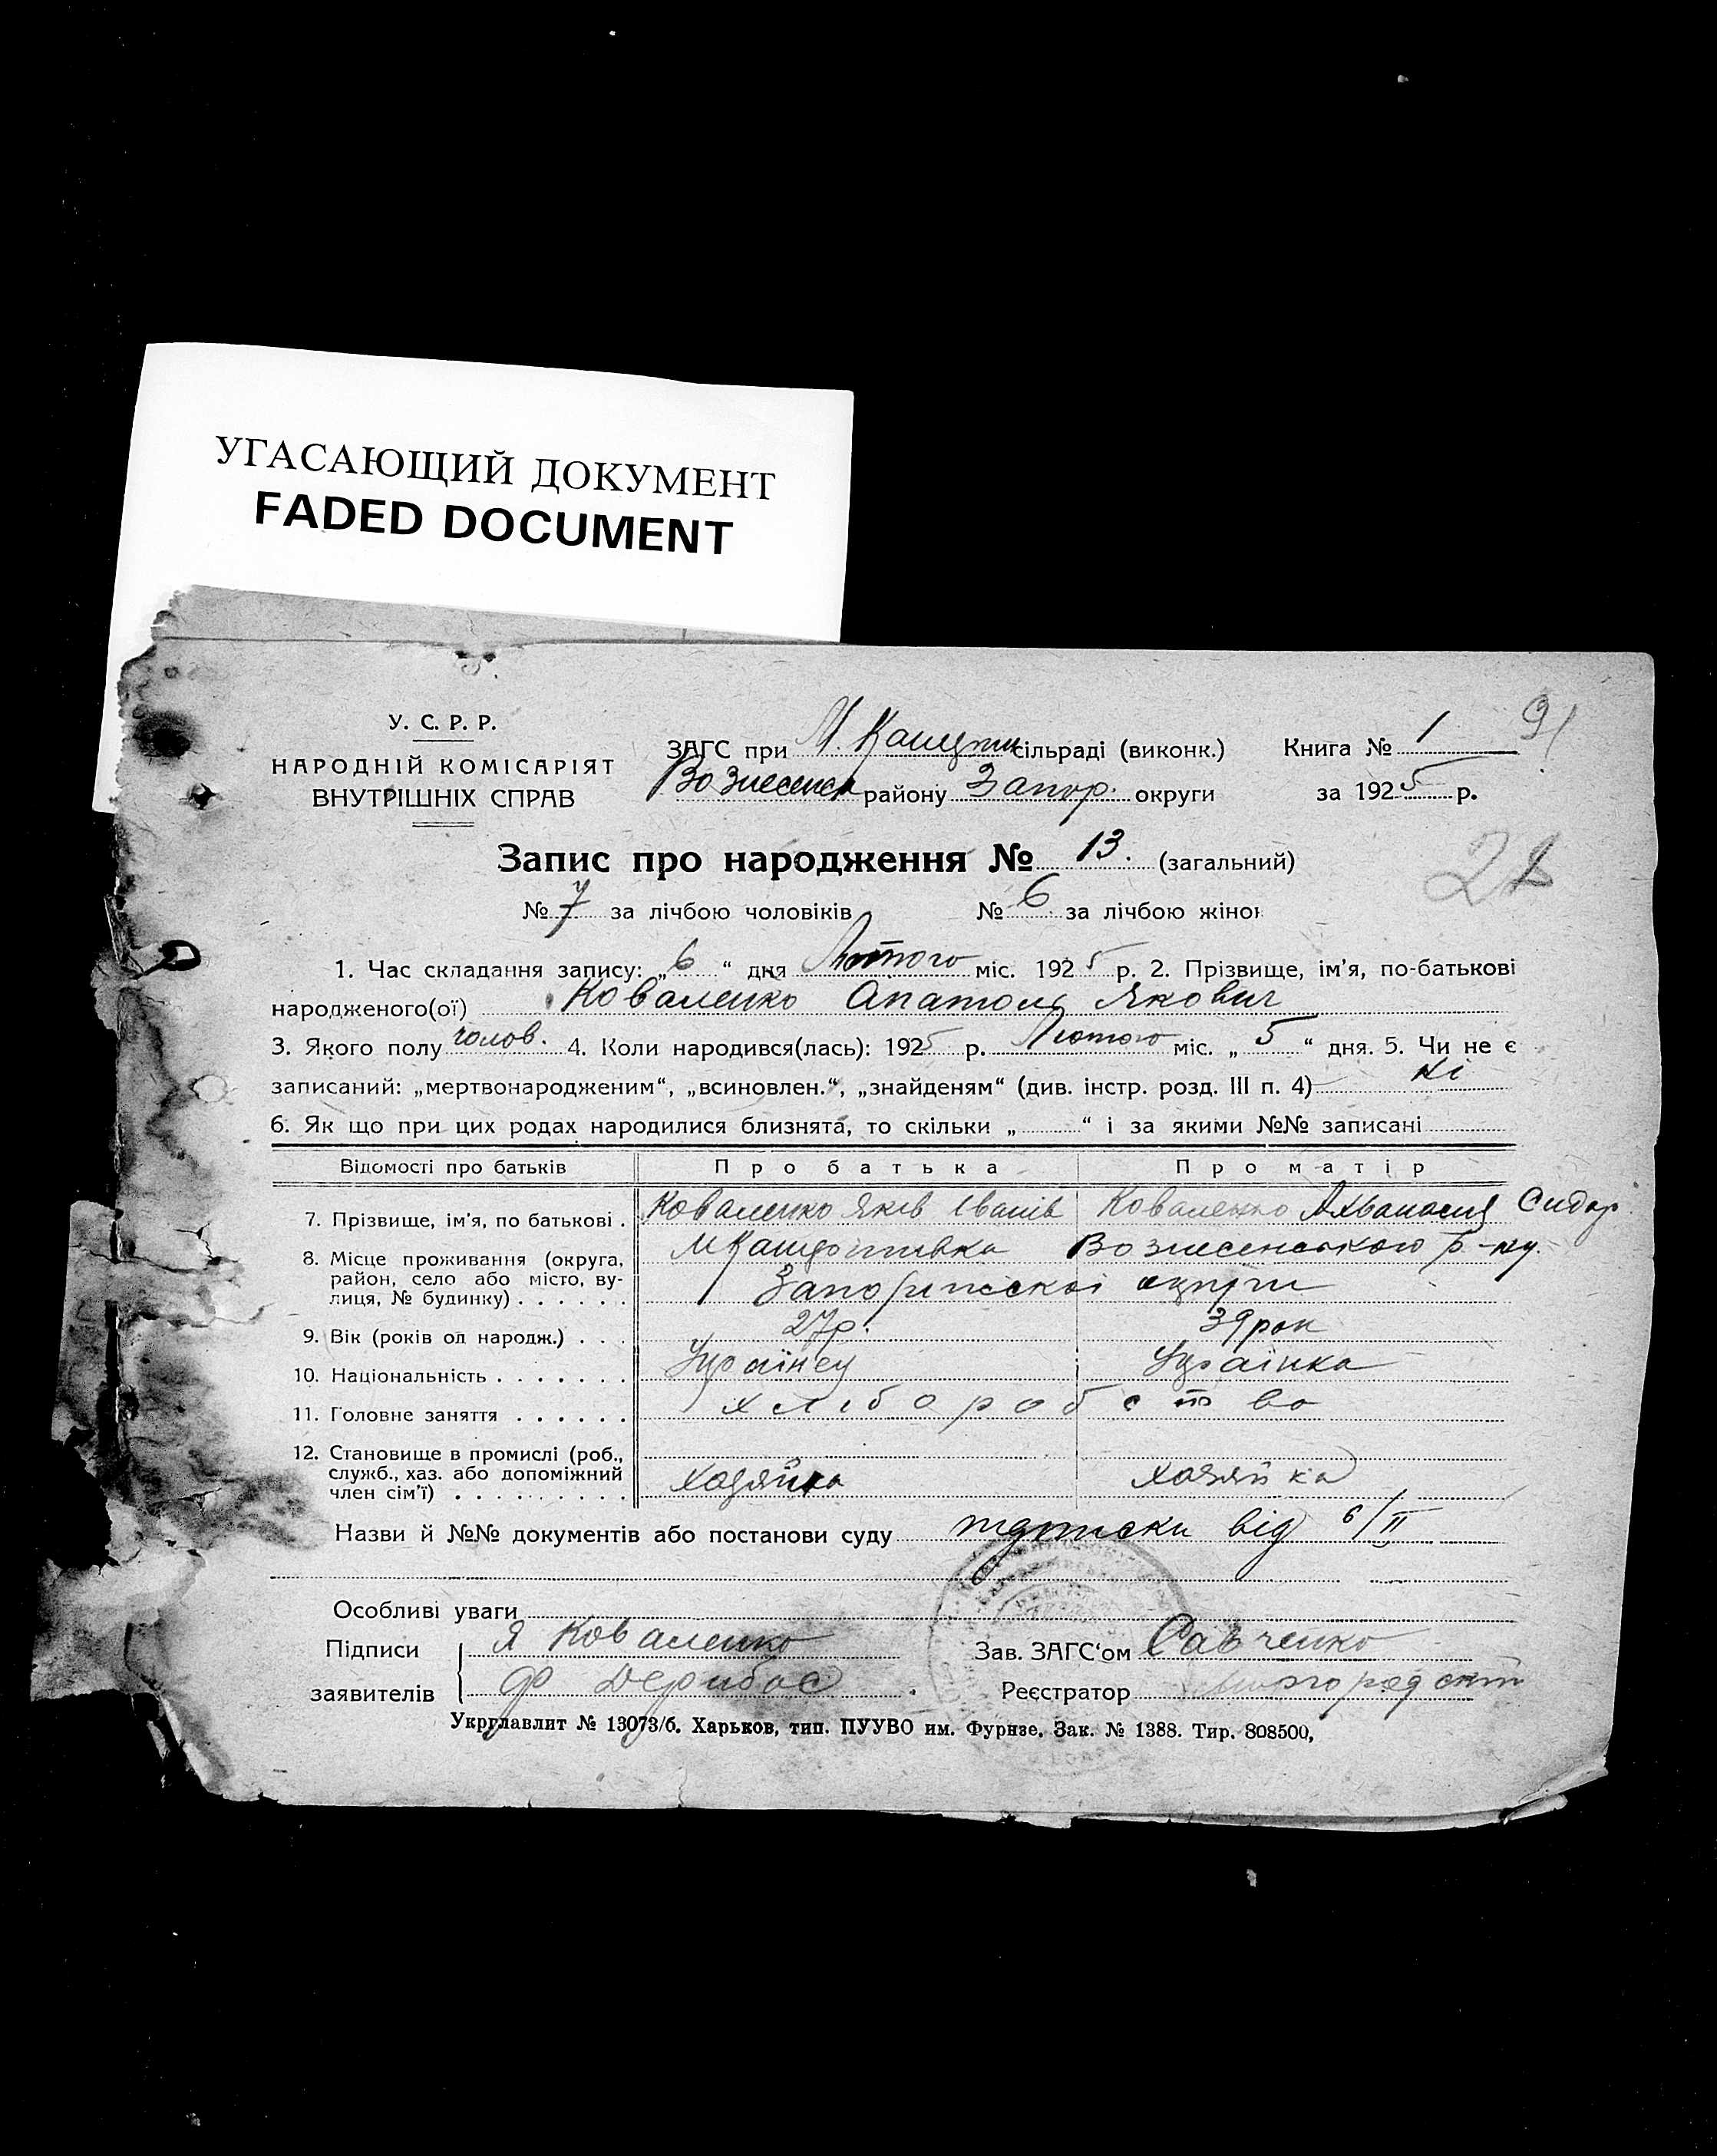 УГАСАЮЩИЙ ДОКУМЕНТ
FADED DOCUMENT
91
У. С. Р. Р.
НАРОДНІЙ КОМІСАРІЯТ
ВНУТРІШНІХ СПРАВ
ЗАГС при М. сільраді (виконк.) Книга № 1
Вознесенск району Запор. округи за 1925 р.
Запис про народження № 13. (загальний)
№ 7 за лічбою чоловіків № 6 за лічбою жінок
1. Час складання запису: „6“ дня Лютого міс. 1925 р. 2. Прізвище, ім'я, по-батькові
народженого(ої) Коваленко Анатоль Якович
3. Якого полу чолов. 4. Коли народився(лась): 1925 р. Лютого міс. „5“ дня. 5. Чи не є
записаний: „мертвонародженим“, „всиновлен.“, „знайденям“ (див. інстр. розд. III п. 4) ні
6. Як що при цих родах народилися близнята, то скільки „ “ і за якими №№ записані
Відомості про батьків Про батька Про матір
7. Прізвище, ім'я, по батькові . Коваленко Яків Іванів Коваленко Сидор.
8. Місце проживання (округа, Вознесенського р-ну.
район, село або місто, ву-
лиця, № будинку) . . . . . . Запоріжскої округи
9. Вік (років од народж.) . . . 27р. 39 рок
10. Національність . . . . . . . Українец Українка
11. Головне заняття . . . . . . хліборобство
12. Становище в промислі (роб.,
служб., хаз. або допоміжний
член сім'ї) . . . . . . . . . хазяйка хазяйка
Назви й №№ документів або постанови суду від 6/II
Особливі уваги
Підписи Я Коваленко Зав. ЗАГС'ом Савченко
заявителів Ф Дерибас Реєстратор
Укрглавлит № 13073/б. Харьков, тип. ПУУВО им. Фурнзе. Зак. № 1388. Тир. 808500,